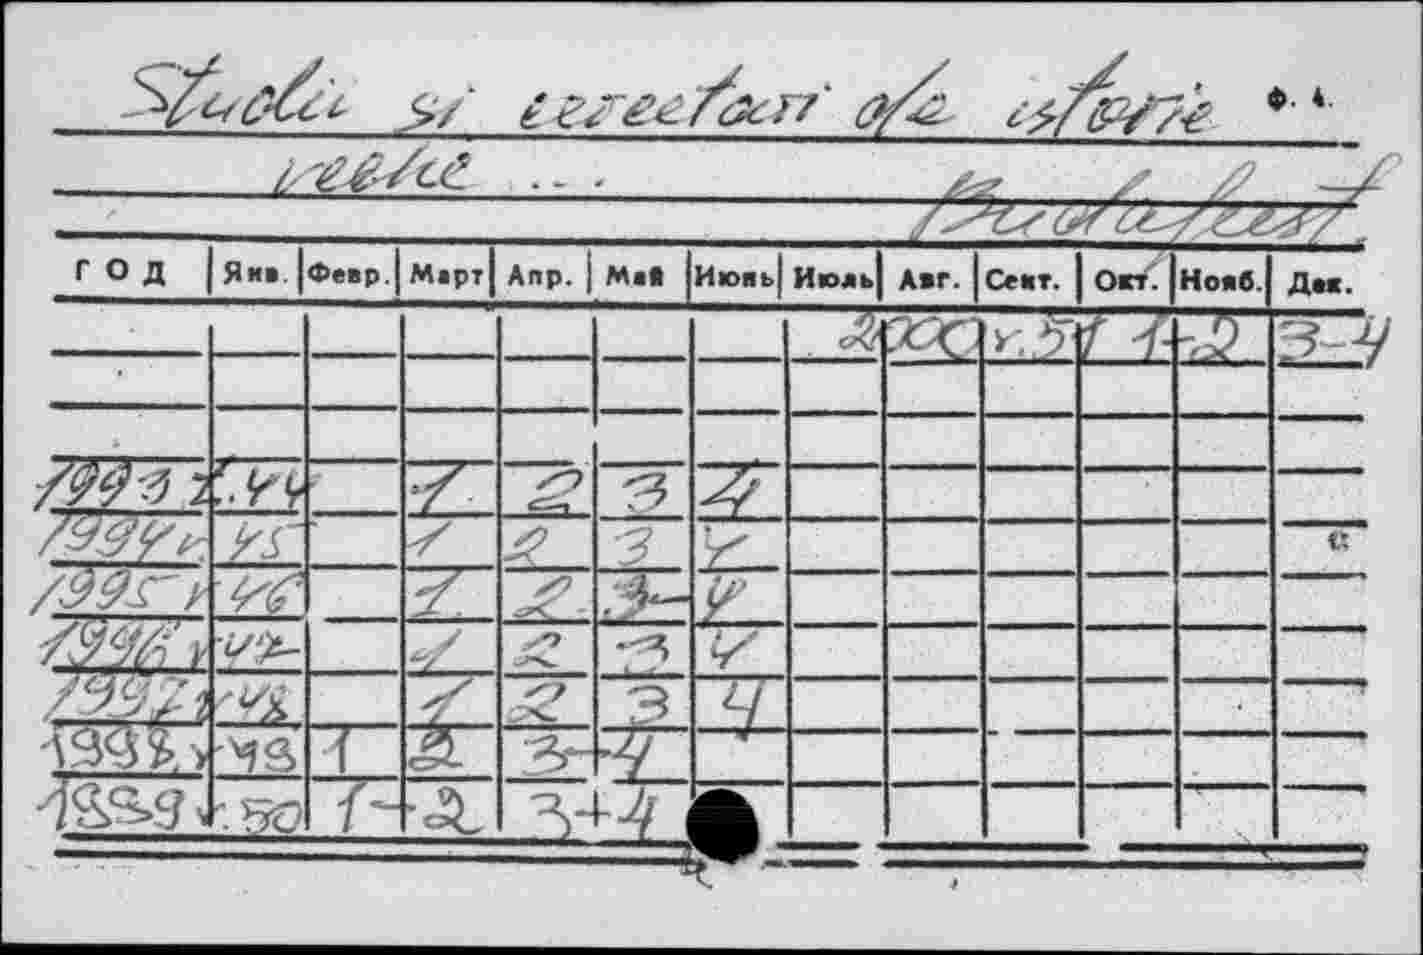 Studii si cercetari de istorie Ф. 4.
veche ...
Bucharest
ГОД Янв. Февр. Март Апр. Май Июнь Июль Авг. Сент. Окт. Нояб. Дек.
2000 v. 51 1-2 3-4
1993 v. 44 1 2 3 4
1994 v. 45 1 2 3 4
1995 v. 46 1. 2. 3- 4
1996 v. 47 1 2 3 4
1997 v. 48 1 2 3 4
1998. v. 49 1 2 3-4
1999 v. 50 1-2 3-4